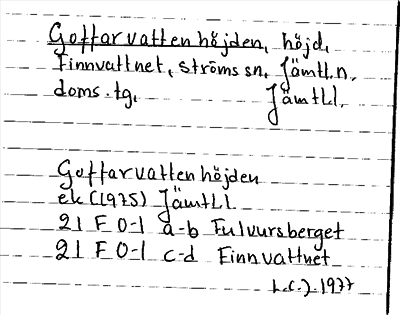 Goffarvattenhöjden, höjd,
Finnvattnet, Ströms sn, Jämtl.n.
doms.tg, Jämtl.l.
Goffarvattenhöjden
ek (1975) Jämtl.l.
21 F 0-1 a-b Fulvursberget
21 F 0-1 c-d Finnvattnet
1977